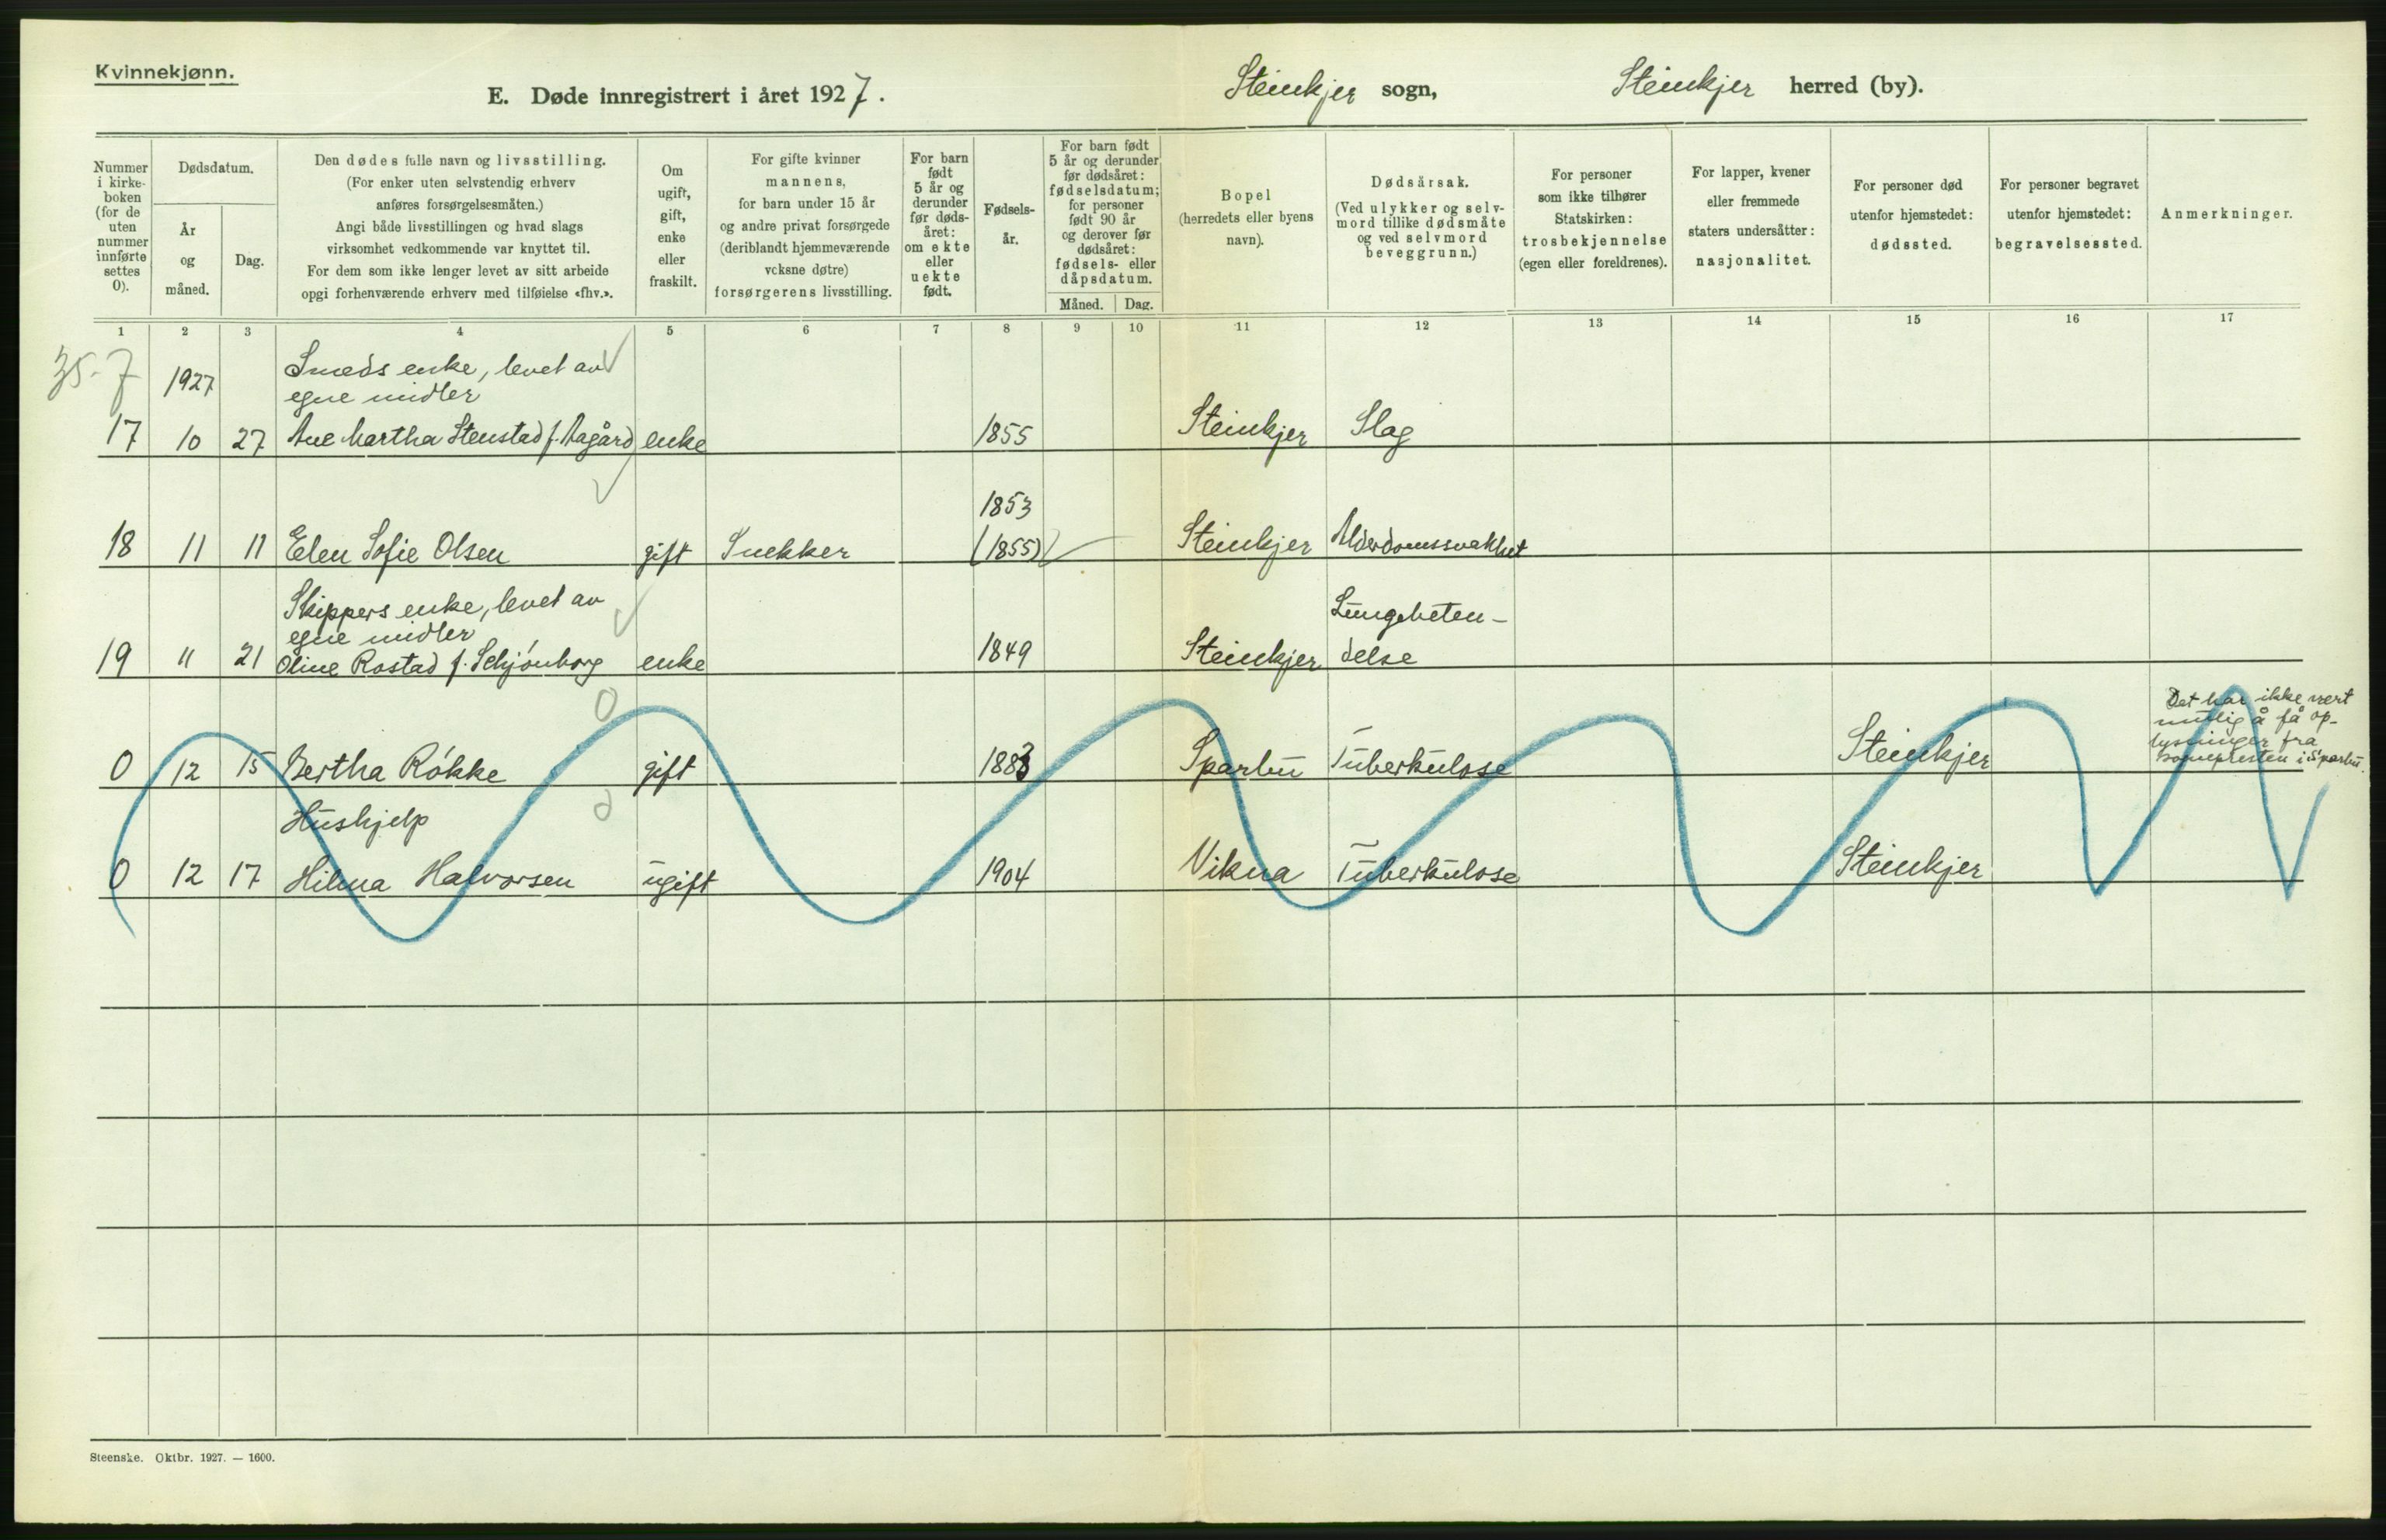 Kvinnekjønn.
E. Døde innregistrert i året 1927.
Steinkjer sogn, Steinkjer herred (by).
Nummer
i kirke-
boken
(for de
uten
nummer
innførte
settes
0).
Dødsdatum.
År
og
måned.
Dag.
Den dødes fulle navn og livsstilling.
(For enker uten selvstendig erhverv
anføres forsørgelsesmåten.)
Angi både livsstillingen og hvad slags
virksomhet vedkommende var knyttet til.
For dem som ikke lenger levet av sitt arbeide
opgi forhenværende erhverv med tilføielse «fhv.».
Om
ugift,
gift,
enke
eller
fraskilt.
For gifte kvinner
mannens,
for barn under 15 år
og andre privat forsørgede
(deriblandt hjemmeværende
vcksne døtre)
forsørgerens livsstilling.
For barn
født
5 år og
derunder
før døds-
året:
om ekte
eller
uekte
født.
Fødsels-
år.
For barn født
5 år og derunder
før dødsåret:
fødselsdatum;
for personer
født 90 år
og derover før
dødsåret:
fødsels- eller
dåpsdatum.
Måned. Dag.
Bopel
(herredets eller byens
navn).
Dødsårsak.
(Ved ulykker og selv-
mord tillike dødsmåte
og ved selvmord
beveggrunn.)
For personer
som ikke tilhører
Statskirken:
trosbekjennelse
(egen eller foreldrenes).
For lapper, kvener
eller fremmede
staters undersåtter:
nasjonalitet.
For personer død
utenfor hjemstedet:
dødssted.
For personer begravet
utenfor hjemstedet:
begravelsessted.
Anmerkninger.
1 2 3 4 5 6 7 8 9 10 11 12 13 14 15 16 17
35-7
1927
Smeds enke, levet av
egne midler
17 10 27 Ane Martha Stenstad f. Aagård enke 1855 Steinkjer Slag
1853
18 11 11 Elen Sofie Olsen gift Snekker (1855) Steinkjer Alderdomssvakhet
Skippers enke, levet av
egne midler
Lungebeten-
19 11 21 Oline Rostad f. Schjönborg enke 1849 Steinkjer delse
0
Det har ikke vært
mulig å få op-
lysninger fra
sognepresten i Sparbu.
0 12 15 Bertha Rökke gift 1883 Sparbu Tuberkulose Steinkjer
0
Hushjelp
0 12 17 Hilma Halvorsen ugift 1904 Vikna Tuberkulose Steinkjer
Steenske. Oktbr. 1927. — 1600.